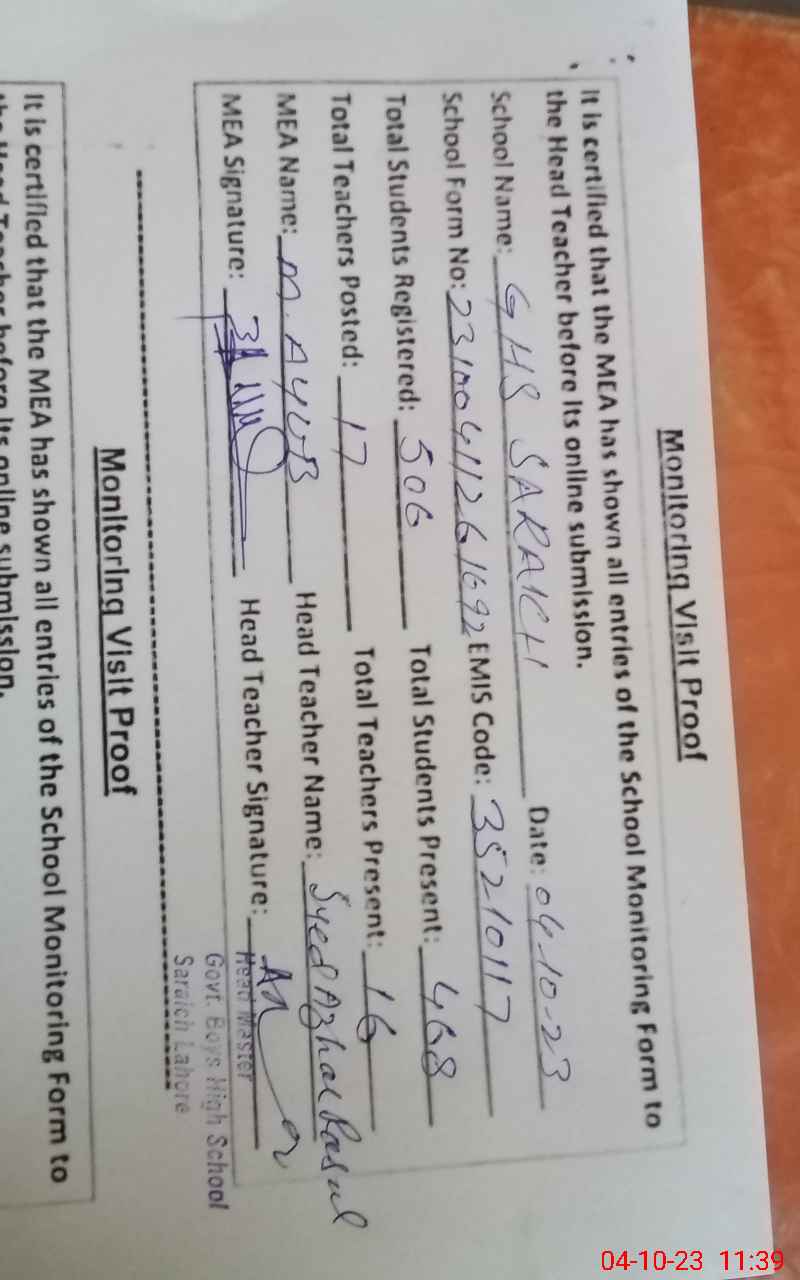 Monitoring Visit Proof
It is certified that the MEA has shown all entries of the School Monitoring Form to
the Head Teacher before its online submission.
School Name: GHS SARAICH Date: 04-10-23
School Form No: 23100411261692 EMIS Code: 35210117
Total Students Registered: 506 Total Students Present: 468
Total Teachers Posted: 17 Total Teachers Present: 16
MEA Name: M. AYUB Head Teacher Name: Syed Azhar Rasul
MEA Signature: Head Teacher Signature:
Head Master
Govt. Boys High School
Saraich Lahore
Monitoring Visit Proof
It is certified that the MEA has shown all entries of the School Monitoring Form to
the Head Teacher before its online submission.
04-10-23 11:39